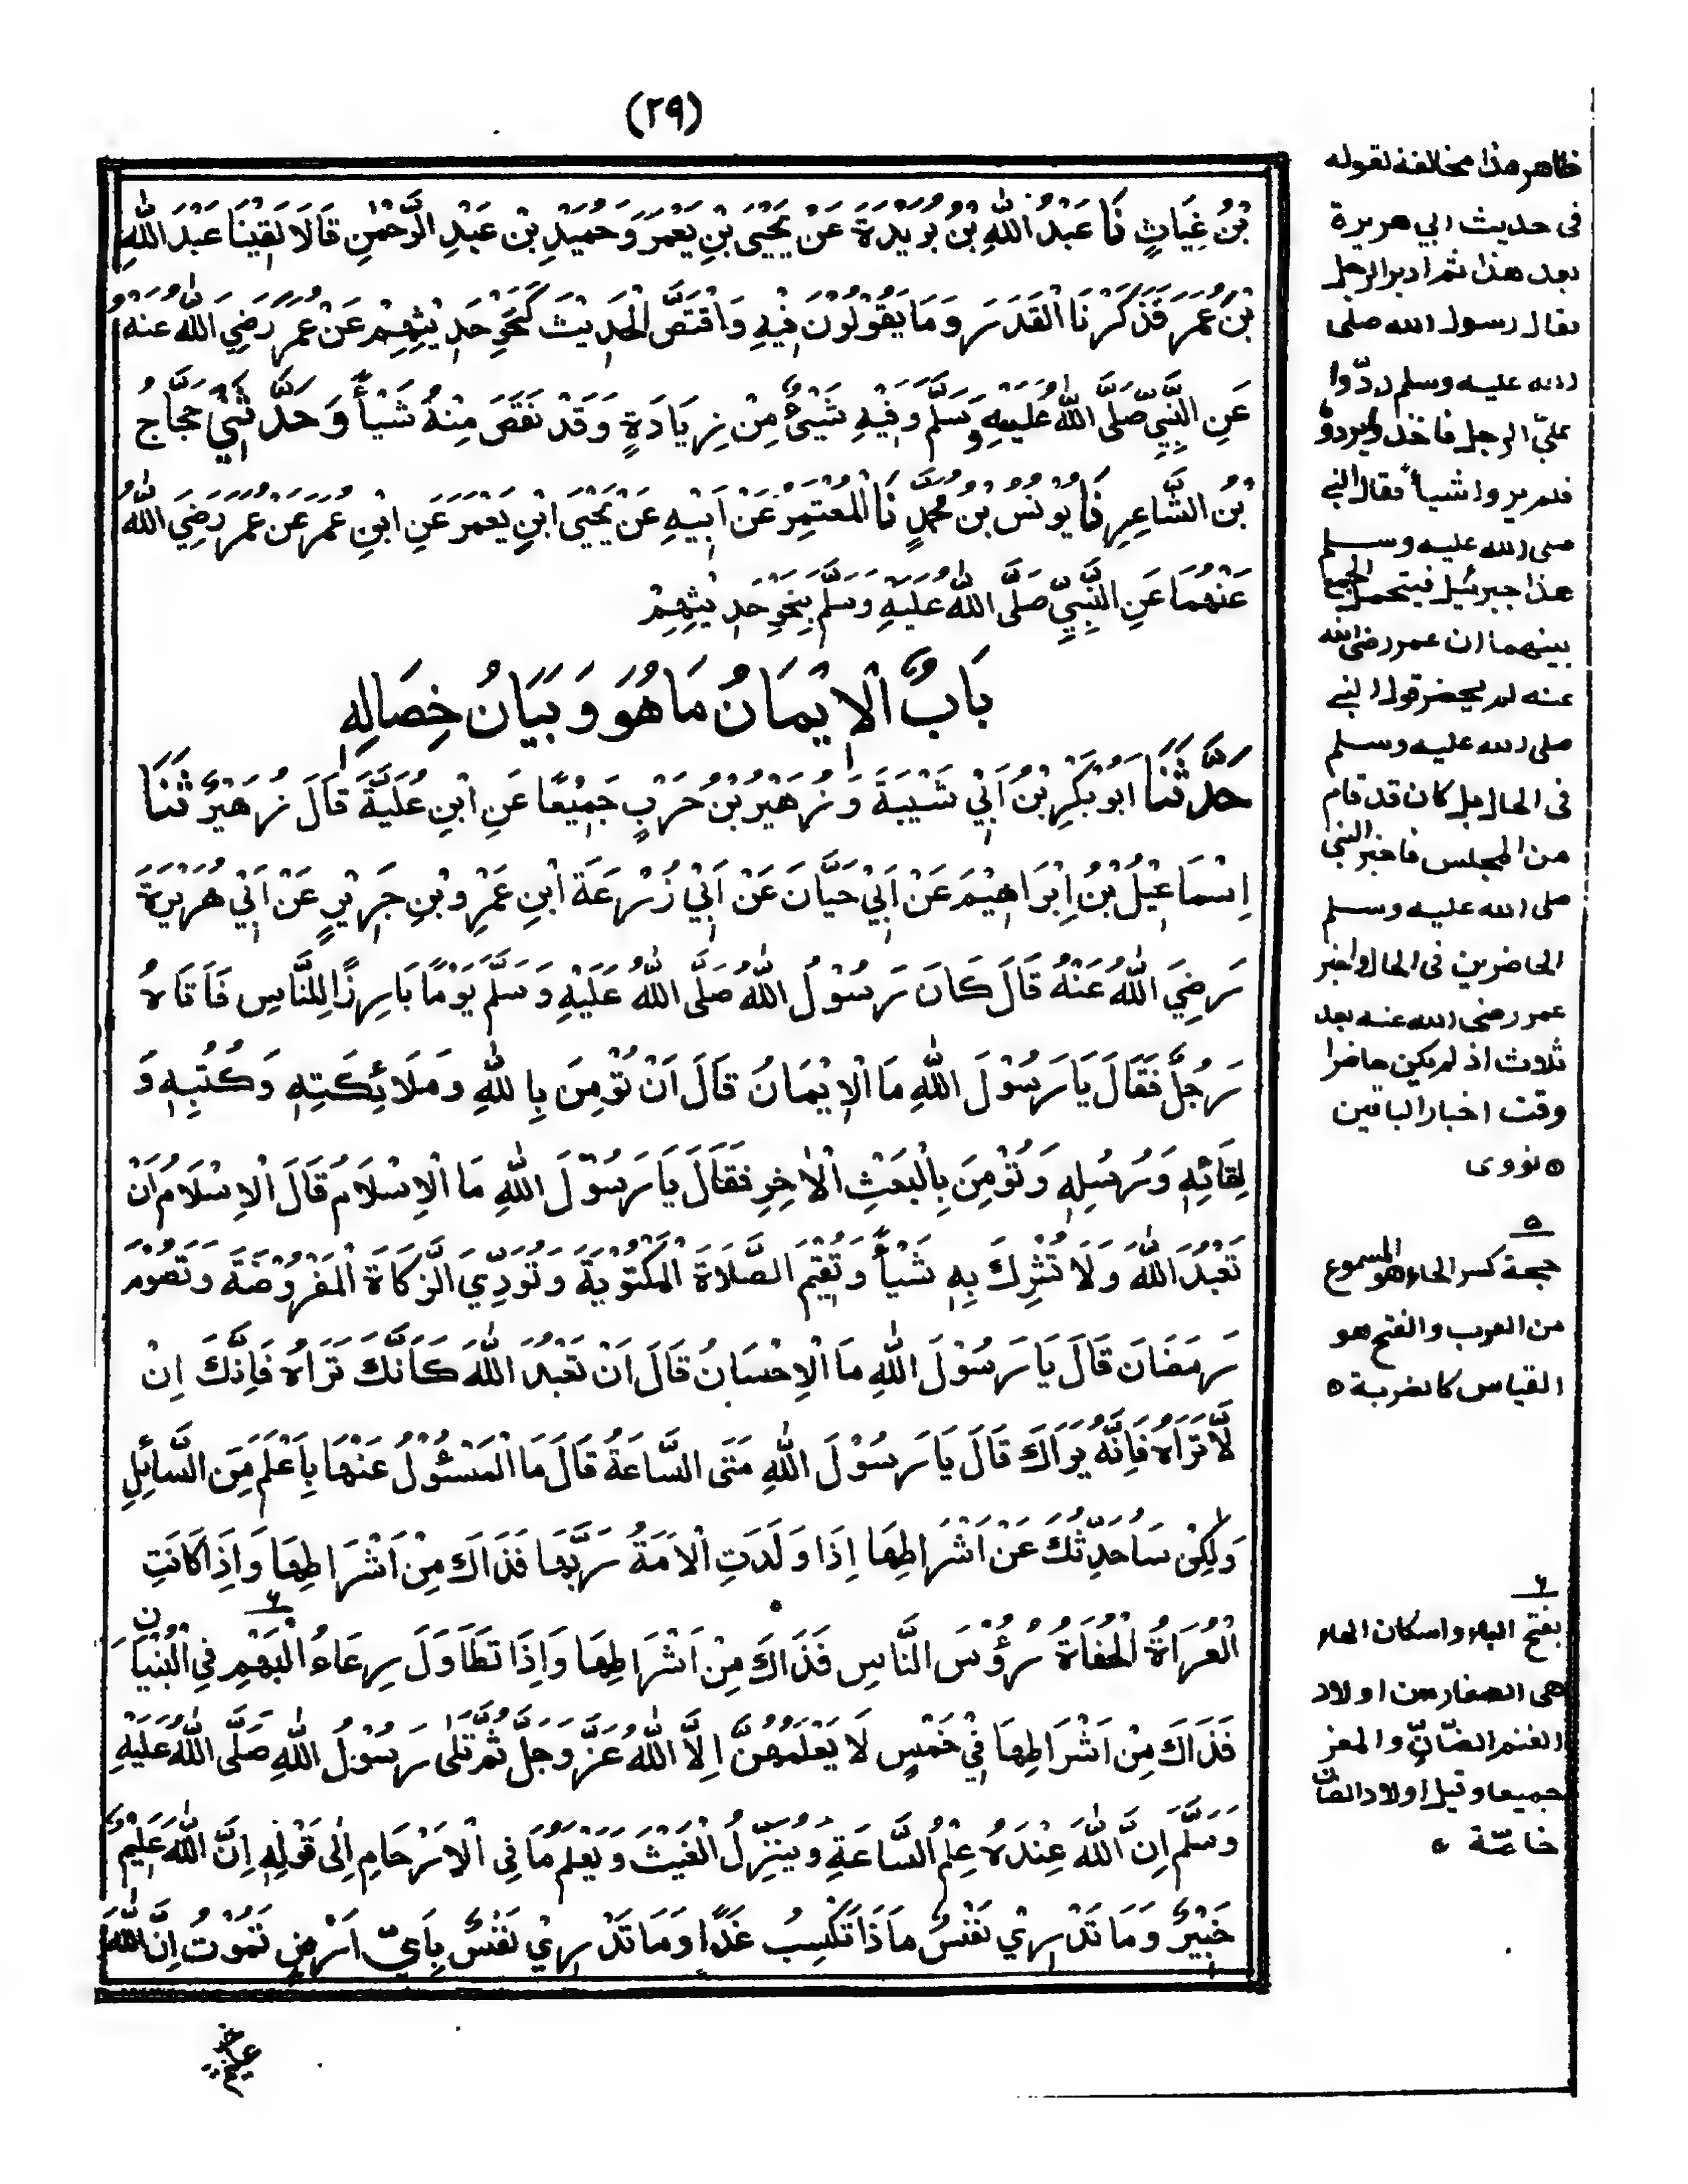 (٢٩)
بْنُ غِيَاثٍ نَا عَبْدُ اللهِ بْنُ بُرَيْدَةَ عَنْ يَحْيَى بْنِ يَعْمَرَ وَحُمَيْدِ بْنِ عَبْدِ الرَّحْمٰنِ قَالَا لَقِيْنَا عَبْدَ اللهِ
بْنَ عُمَرَ فَذَكَرْنَا الْقَدَرَ وَمَا يَقُوْلُوْنَ فِيْهِ وَاقْتَصَّ الْحَدِيْثَ كَنَحْوِ حَدِيْثِهِمْ عَنْ عُمَرَ رَضِيَ اللهُ عَنْهُ
عَنِ النَّبِيِّ صَلَّى اللهُ عَلَيْهِ وَسَلَّمَ وَفِيْهِ شَيْئٌ مِنْ زِيَادَةٍ وَقَدْ نَقَصَ مِنْهُ شَيْأً وَحَدَّثَنِيْ حَجَّاجُ
بْنُ الشَّاعِرِ نَا يُوْنُسُ بْنُ مُحَمَّدٍ نَا الْمُعْتَمِرُ عَنْ اَبِيْهِ عَنْ يَحْيَى ابْنِ يَعْمَرَ عَنِ ابْنِ عُمَرَ عَنْ عُمَرَ رَضِيَ اللهُ
عَنْهُمَا عَنِ النَّبِيِّ صَلَّى اللهُ عَلَيْهِ وَسَلَّمَ بِنَحْوِ حَدِيْثِهِمْ
بَابُ الْاِيْمَانُ مَا هُوَ وَبَيَانُ خِصَالِهِ
حَدَّثَنَا اَبُوْ بَكْرِ بْنُ اَبِيْ شَيْبَةَ وَزُهَيْرُ بْنُ حَرْبٍ جَمِيْعًا عَنِ ابْنِ عُلَيَّةَ قَالَ زُهَيْرٌ ثَنَا
اِسْمَاعِيْلُ بْنُ اِبْرَاهِيْمَ عَنْ اَبِيْ حَيَّانَ عَنْ اَبِيْ زُرْعَةَ ابْنِ عَمْرِو بْنِ جَرِيْرٍ عَنْ اَبِيْ هُرَيْرَةَ
رَضِيَ اللهُ عَنْهُ قَالَ كَانَ رَسُوْلُ اللهِ صَلَّى اللهُ عَلَيْهِ وَسَلَّمَ يَوْمًا بَارِزًا لِلنَّاسِ فَاَتَاهُ
رَجُلٌ فَقَالَ يَا رَسُوْلَ اللهِ مَا الْاِيْمَانُ قَالَ اَنْ تُؤْمِنَ بِاللهِ وَمَلَائِكَتِهِ وَكُتُبِهِ وَ
لِقَائِهِ وَرُسُلِهِ وَتُؤْمِنَ بِالْبَعْثِ الْاٰخِرِ فَقَالَ يَا رَسُوْلَ اللهِ مَا الْاِسْلَامُ قَالَ الْاِسْلَامُ اَنْ
تَعْبُدَ اللهَ وَلَا تُشْرِكَ بِهِ شَيْأً وَتُقِيْمَ الصَّلَاةَ الْمَكْتُوْبَةَ وَتُؤَدِّيَ الزَّكَاةَ الْمَفْرُوْضَةَ وَتَصُوْمَ
رَمَضَانَ قَالَ يَا رَسُوْلَ اللهِ مَا الْاِحْسَانُ قَالَ اَنْ تَعْبُدَ اللهَ كَاَنَّكَ تَرَاهُ فَاِنَّكَ اِنْ
لَّا تَرَاهُ فَاِنَّهُ يَرَاكَ قَالَ يَا رَسُوْلَ اللهِ مَتَى السَّاعَةُ قَالَ مَا الْمَسْئُوْلُ عَنْهَا بِاَعْلَمَ مِنَ السَّائِلِ
وَلٰكِنْ سَاُحَدِّثُكَ عَنْ اَشْرَاطِهَا اِذَا وَلَدَتِ الْاَمَةُ رَبَّهَا فَذَاكَ مِنْ اَشْرَاطِهَا وَاِذَا كَانَتِ
الْعُرَاةُ الْحُفَاةُ رُؤُسَ النَّاسِ فَذَاكَ مِنْ اَشْرَاطِهَا وَاِذَا تَطَاوَلَ رِعَاءُ الْبَهْمِ فِي الْبُنْيَانِ
فَذَاكَ مِنْ اَشْرَاطِهَا فِيْ خَمْسٍ لَا يَعْلَمُهُنَّ اِلَّا اللهُ عَزَّ وَجَلَّ ثُمَّ تَلٰى رَسُوْلُ اللهِ صَلَّى اللهُ عَلَيْهِ
وَسَلَّمَ اِنَّ اللهَ عِنْدَهُ عِلْمُ السَّاعَةِ وَيُنَزِّلُ الْغَيْثَ وَيَعْلَمُ مَا فِي الْاَرْحَامِ اِلٰى قَوْلِهِ اِنَّ اللهَ عَلِيْمٌ
خَبِيْرٌ وَمَا تَدْرِيْ نَفْسٌ مَاذَا تَكْسِبُ غَدًا وَمَا تَدْرِيْ نَفْسٌ بِاَيِّ اَرْضٍ تَمُوْتُ اِنَّ اللهَ
ظاهر هذا مخالفة لقوله
فى حديث ابي هريرة
بعد هذا ثم ادبر الرجل
فقال رسول الله صلى
الله عليه وسلم ردّوا
علىّ الرجل فاخذوا ليردوه
فلم يروا شيأ فقال النبي
صلى الله عليه وسلم
هذا جبرئيل فيتحمل الجمع
بينهما ان عمر رضى الله
عنه لم يحضر قول النبي
صلى الله عليه وسلم
فى الحال بل كان قد قام
من المجلس فاخبر النبي
صلى الله عليه وسلم
الحاضرين فى الحال واخبر
عمر رضى الله عنه بعد
ثلاث اذ لم يكن حاضرا
وقت اخبار الباقين
ه نووى
ه
حجة كسر الحاء هو المسموع
من العرب والفتح هو
القياس كالضربة ه
٦
بفتح الباء واسكان الهاء
هى الصغار من اولاد
الغنم الضّانّ والمعز
جميعا وقيل اولاد الضان
خاصّة ه